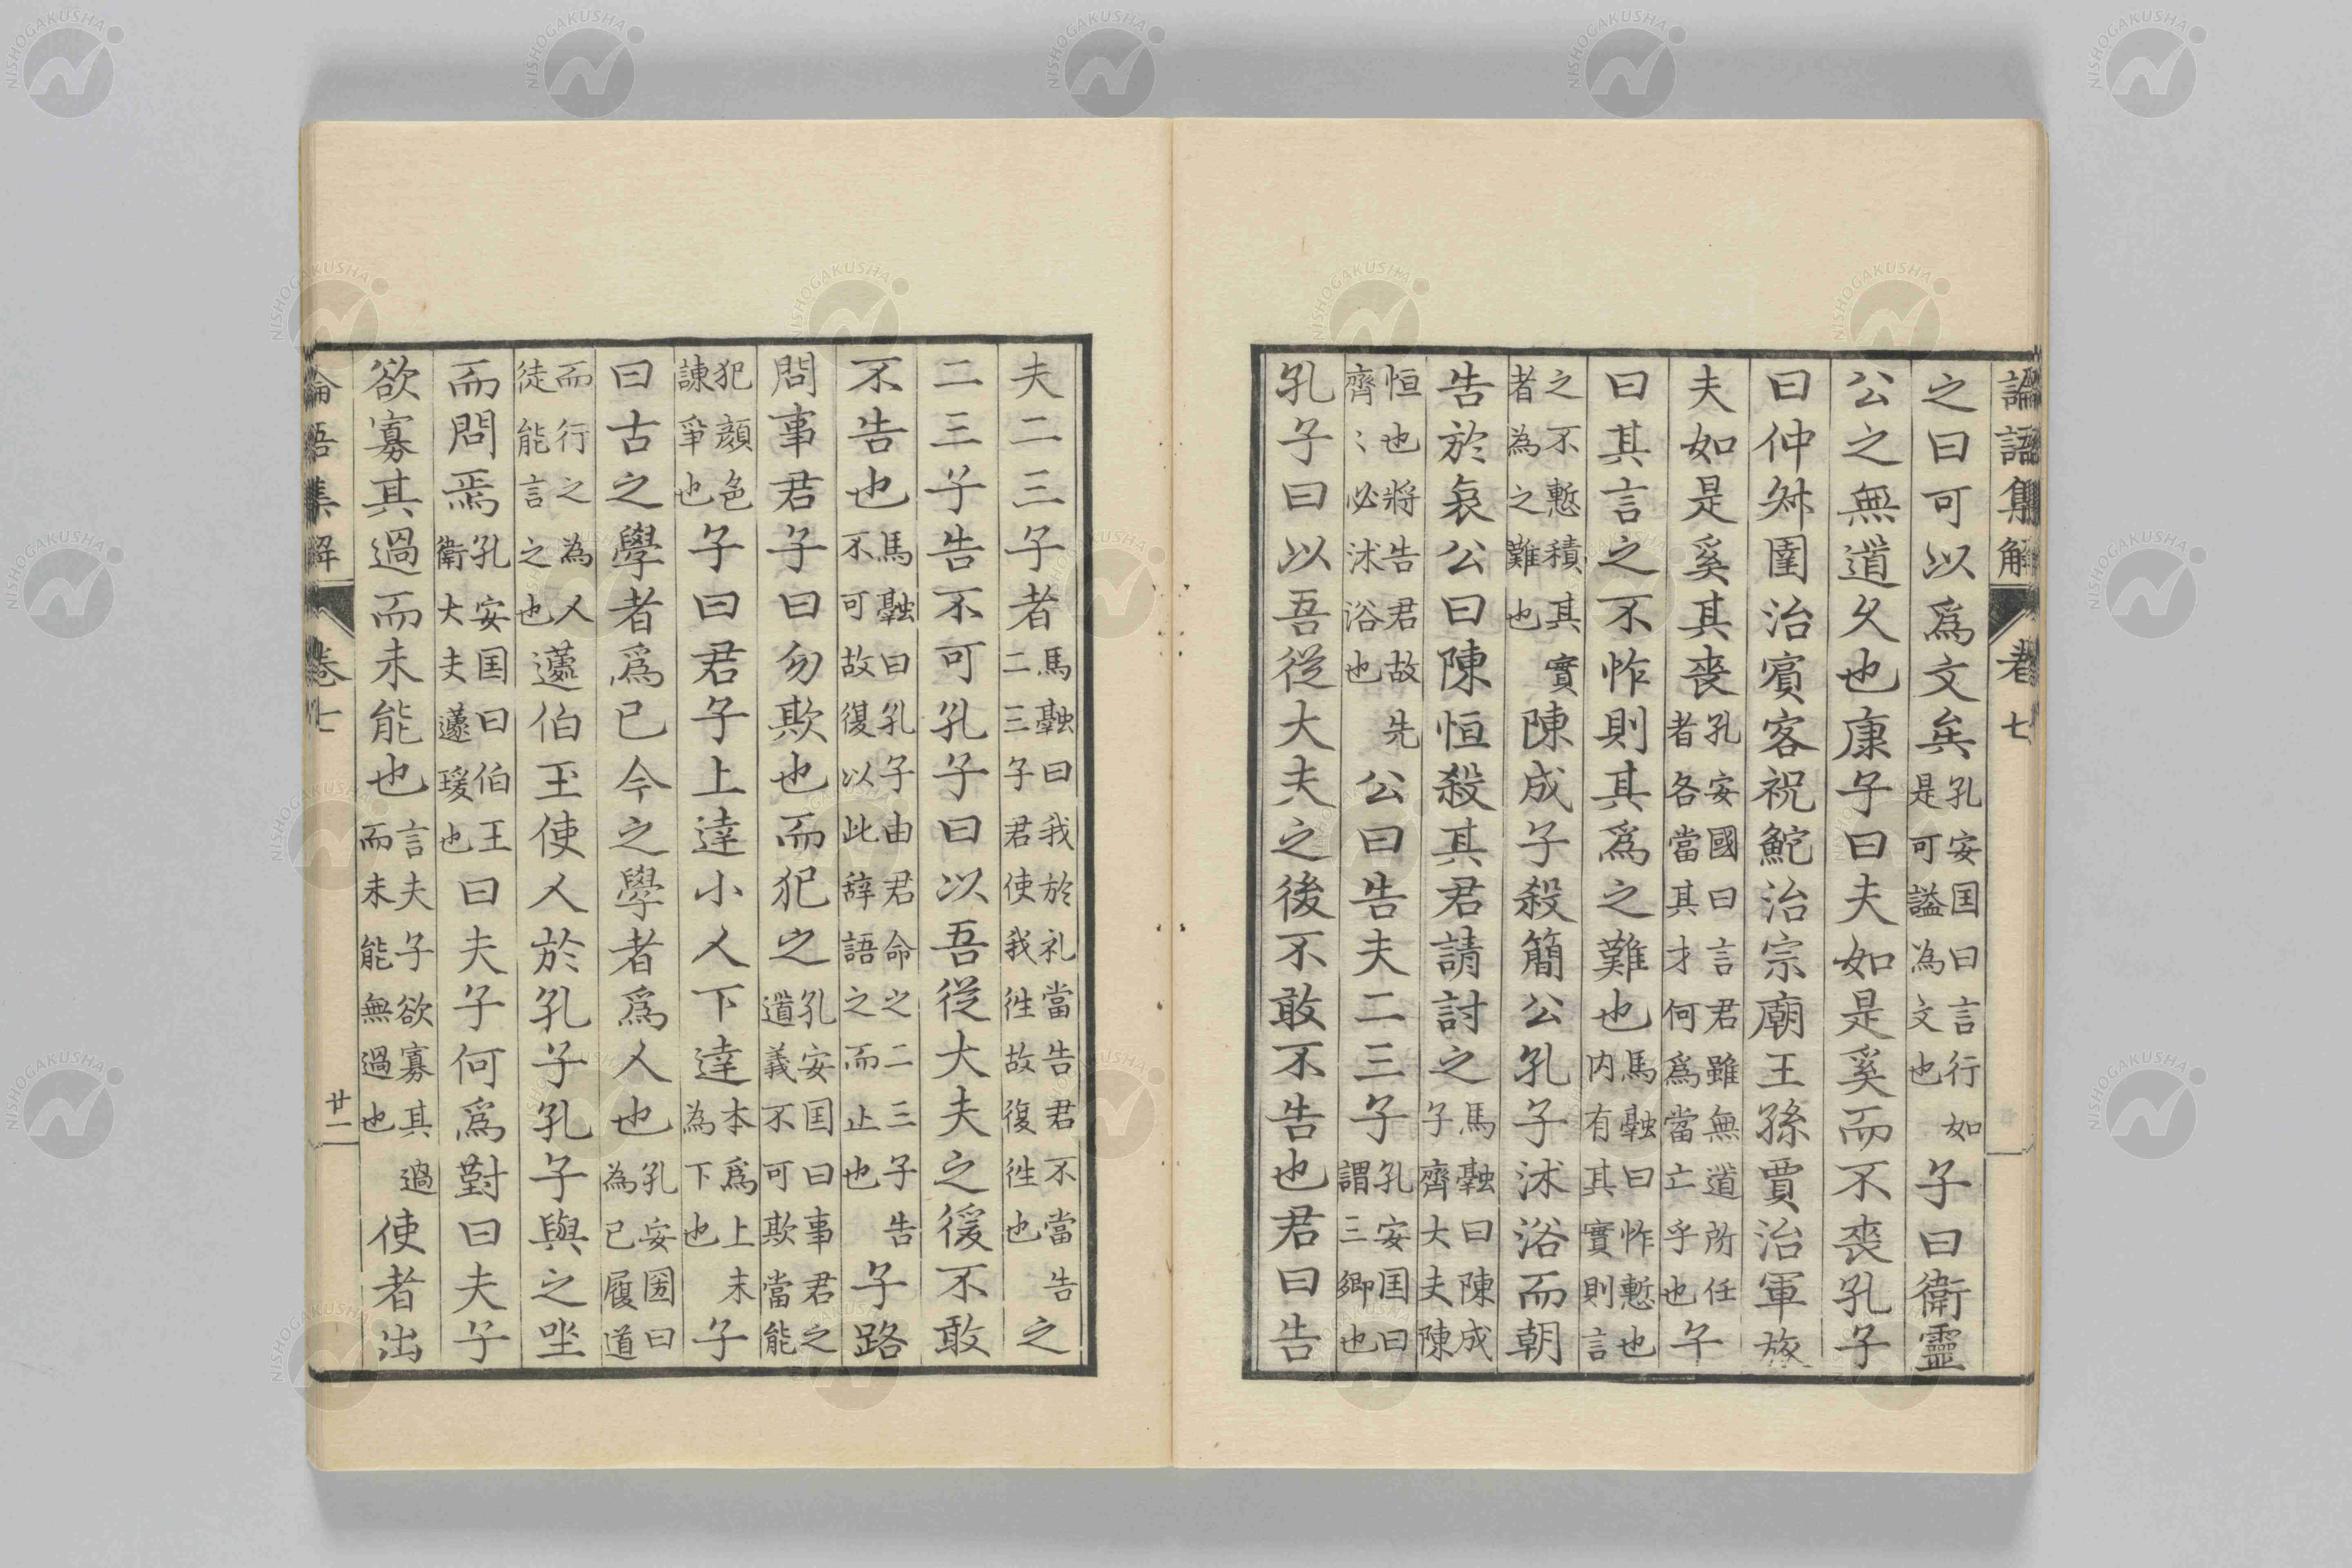 論語集解 卷七
之曰可以爲文矣孔安囯曰言行如是可謚為文也子曰衛靈
公之無道久也康子曰夫如是奚而不喪孔子
曰仲叔圉治賓客祝鮀治宗廟王孫賈治軍旅
夫如是奚其喪孔安國曰言君雖無道所任者各當其才何爲當亡乎也子
曰其言之不怍則其爲之難也馬融曰怍慙也内有其實則言
之不慙積其實者為之難也陳成子殺簡公孔子沐浴而朝
告於哀公曰陳恒殺其君請討之馬融曰陳成子齊大夫陳
恒也將告君故先齊〻必沐浴也公曰告夫二三子孔安囯曰謂三卿也
孔子曰以吾從大夫之後不敢不告也君曰告
夫二三子者馬融曰我於礼當告君不當告二三子君使我徃故復徃也之
二三子告不可孔子曰以吾從大夫之後不敢
不告也馬融曰孔子由君命之二三子告不可故復以此辞語之而止也子路
問事君子曰勿欺也而犯之孔安囯曰事君之道義不可欺當能
犯顔色諫爭也子曰君子上達小人下達本爲上末為下也子
曰古之學者爲己今之學者爲人也孔安囯曰為己履道
而行之為人徒能言之也蘧伯玉使人於孔子孔子與之坐
而問焉孔安囯曰伯玉衛大夫蘧瑗也曰夫子何爲對曰夫子
欲寡其過而未能也言夫子欲寡其過而未能無過也使者出
論語集解 卷七 廿二